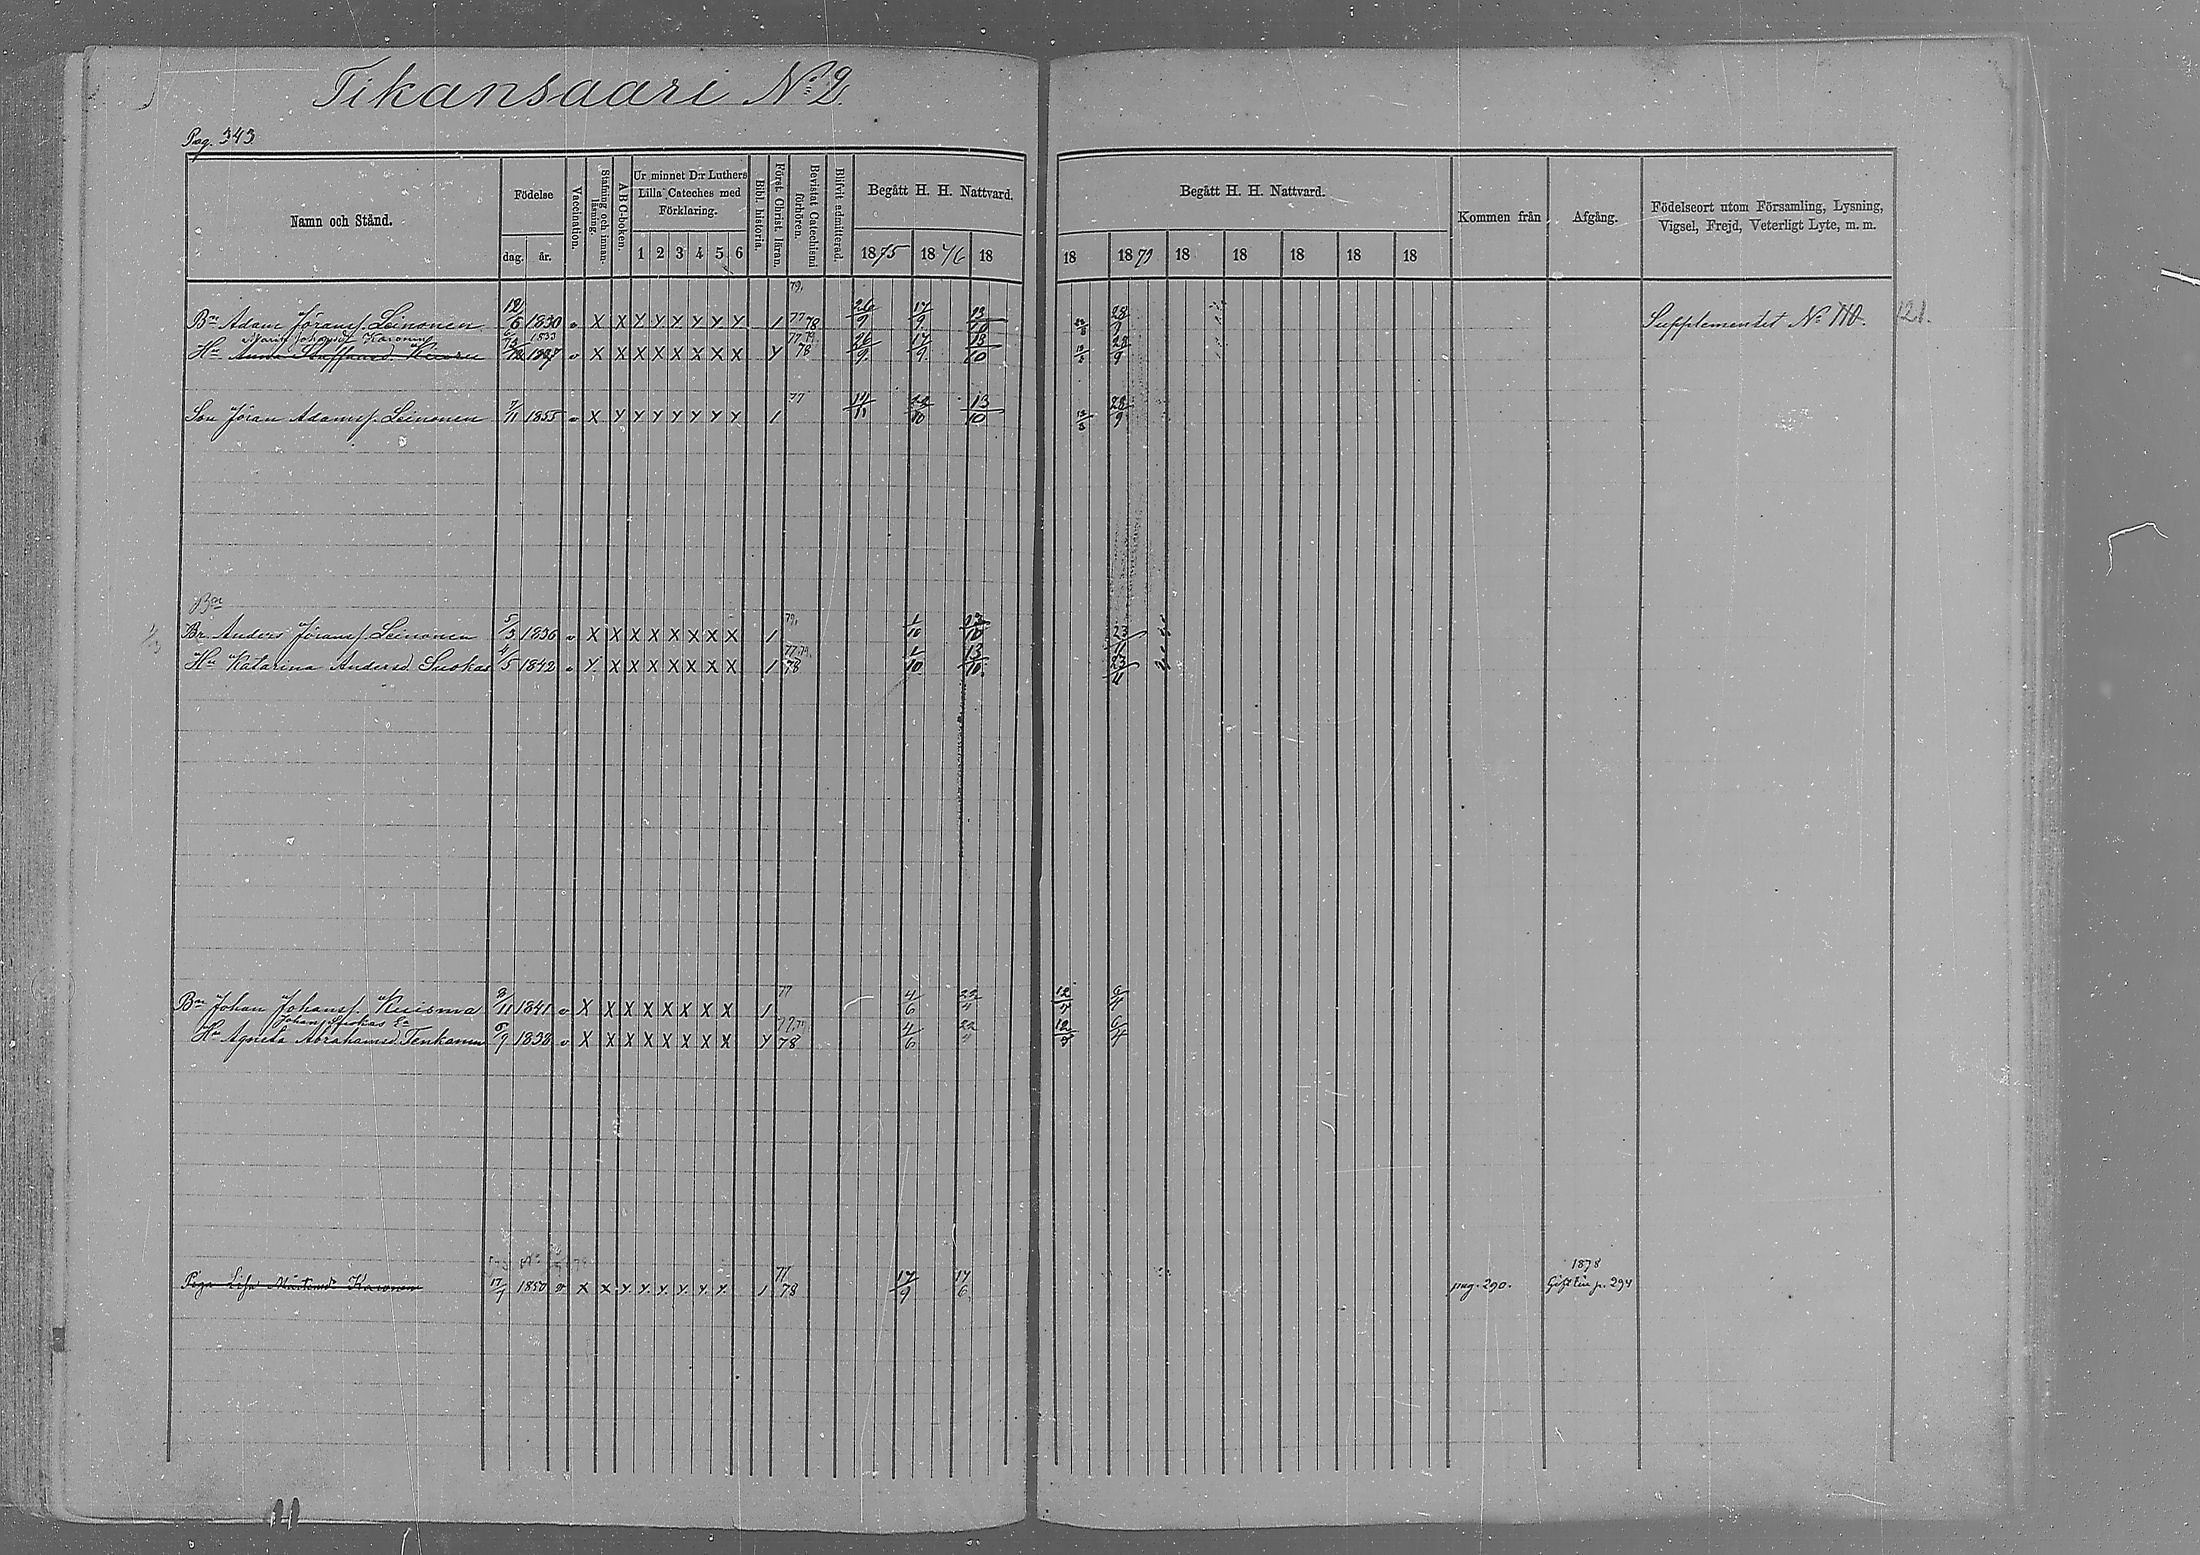 Tikansaari No 2.
Pag. 343.
Namn och Stånd.
Födelse
dag. år.
Vaccination.
Stafning och innan-läsning.
A B C-boken.
Ur minnet D:r Luthers Lilla Cateches med Förklaring.
1 2 3 4 5 6
Bibl. historia.
Först. Christ. läran.
Bevistat Catechismi förhören.
Blifvit admitterad.
Begått H. H. Nattvard.
1875 1876 18
Begått H. H. Nattvard.
18 1879 18 18 18 18 18
Kommen från
Afgång.
Födelseort utom Församling, Lysning, Vigsel, Frejd, Veterligt Lyte, m. m.
Bn Adam Jöranss. Leinonen 12/6 1830 v X X Y Y Y Y Y Y 1 77 78 79. 26/9 17/9 13/10 28/9 Supplementet No 110. 121.
Maria Johansd Karonen 1833
Hu Anna Staffansd 1827 v X X X X X X X X Y 77 79. 78 26/9 17/9 13/10 28/9
Son Jöran Adamss. Leinonen 7/11 1855 v X Y Y Y Y Y Y Y 1 77 22/10 13/10 28/9
Bn
Br. Anders Jöranss. Leinonen 5/3 1836 v X X X X X X X X 1 79. 1/10
Hu Katarina Andersd. Suokas 4/5 1842 v Y X X X X X X X 1 77.79. 78 1/10 13/10. 23/4
Bn Johan Johanss. Kuisma 2/11 1841 v X X X X X X X X 1 77 4/6 22/4 12/4 6/4
Johan Suokas
Hu Agneta Abrahamsd. Tenkanen 6/9 1838 v X X X X X X X X Y 77.79 78 4/6 22/4 6/4
Piga Lisa Karonen 17/7 1850 v X X Y Y Y Y Y Y 1 77 78 17/9 17/6 pag. 290. 1878 Gift p. 294